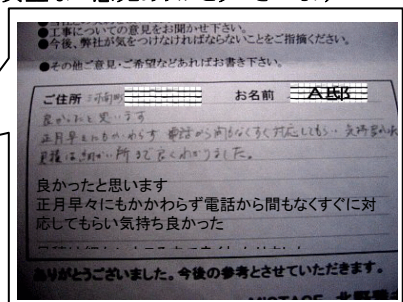 ●工事についての意見をお聞かせ下さい。
●今後、弊社が気をつけなければならないことをご指摘ください。
●その他ご意見・ご希望などあればお書き下さい。
ご住所 お名前 A邸
良かったと思います
正月早々にもかかわらず 電話から間もなくすぐ対応してもらい 気持良かった
見積は細かい所まで良くわかりました。
良かったと思います
正月早々にもかかわらず電話から間もなくすぐに対
応してもらい気持ち良かった
ありがとうございました。今後の参考とさせていただきます。